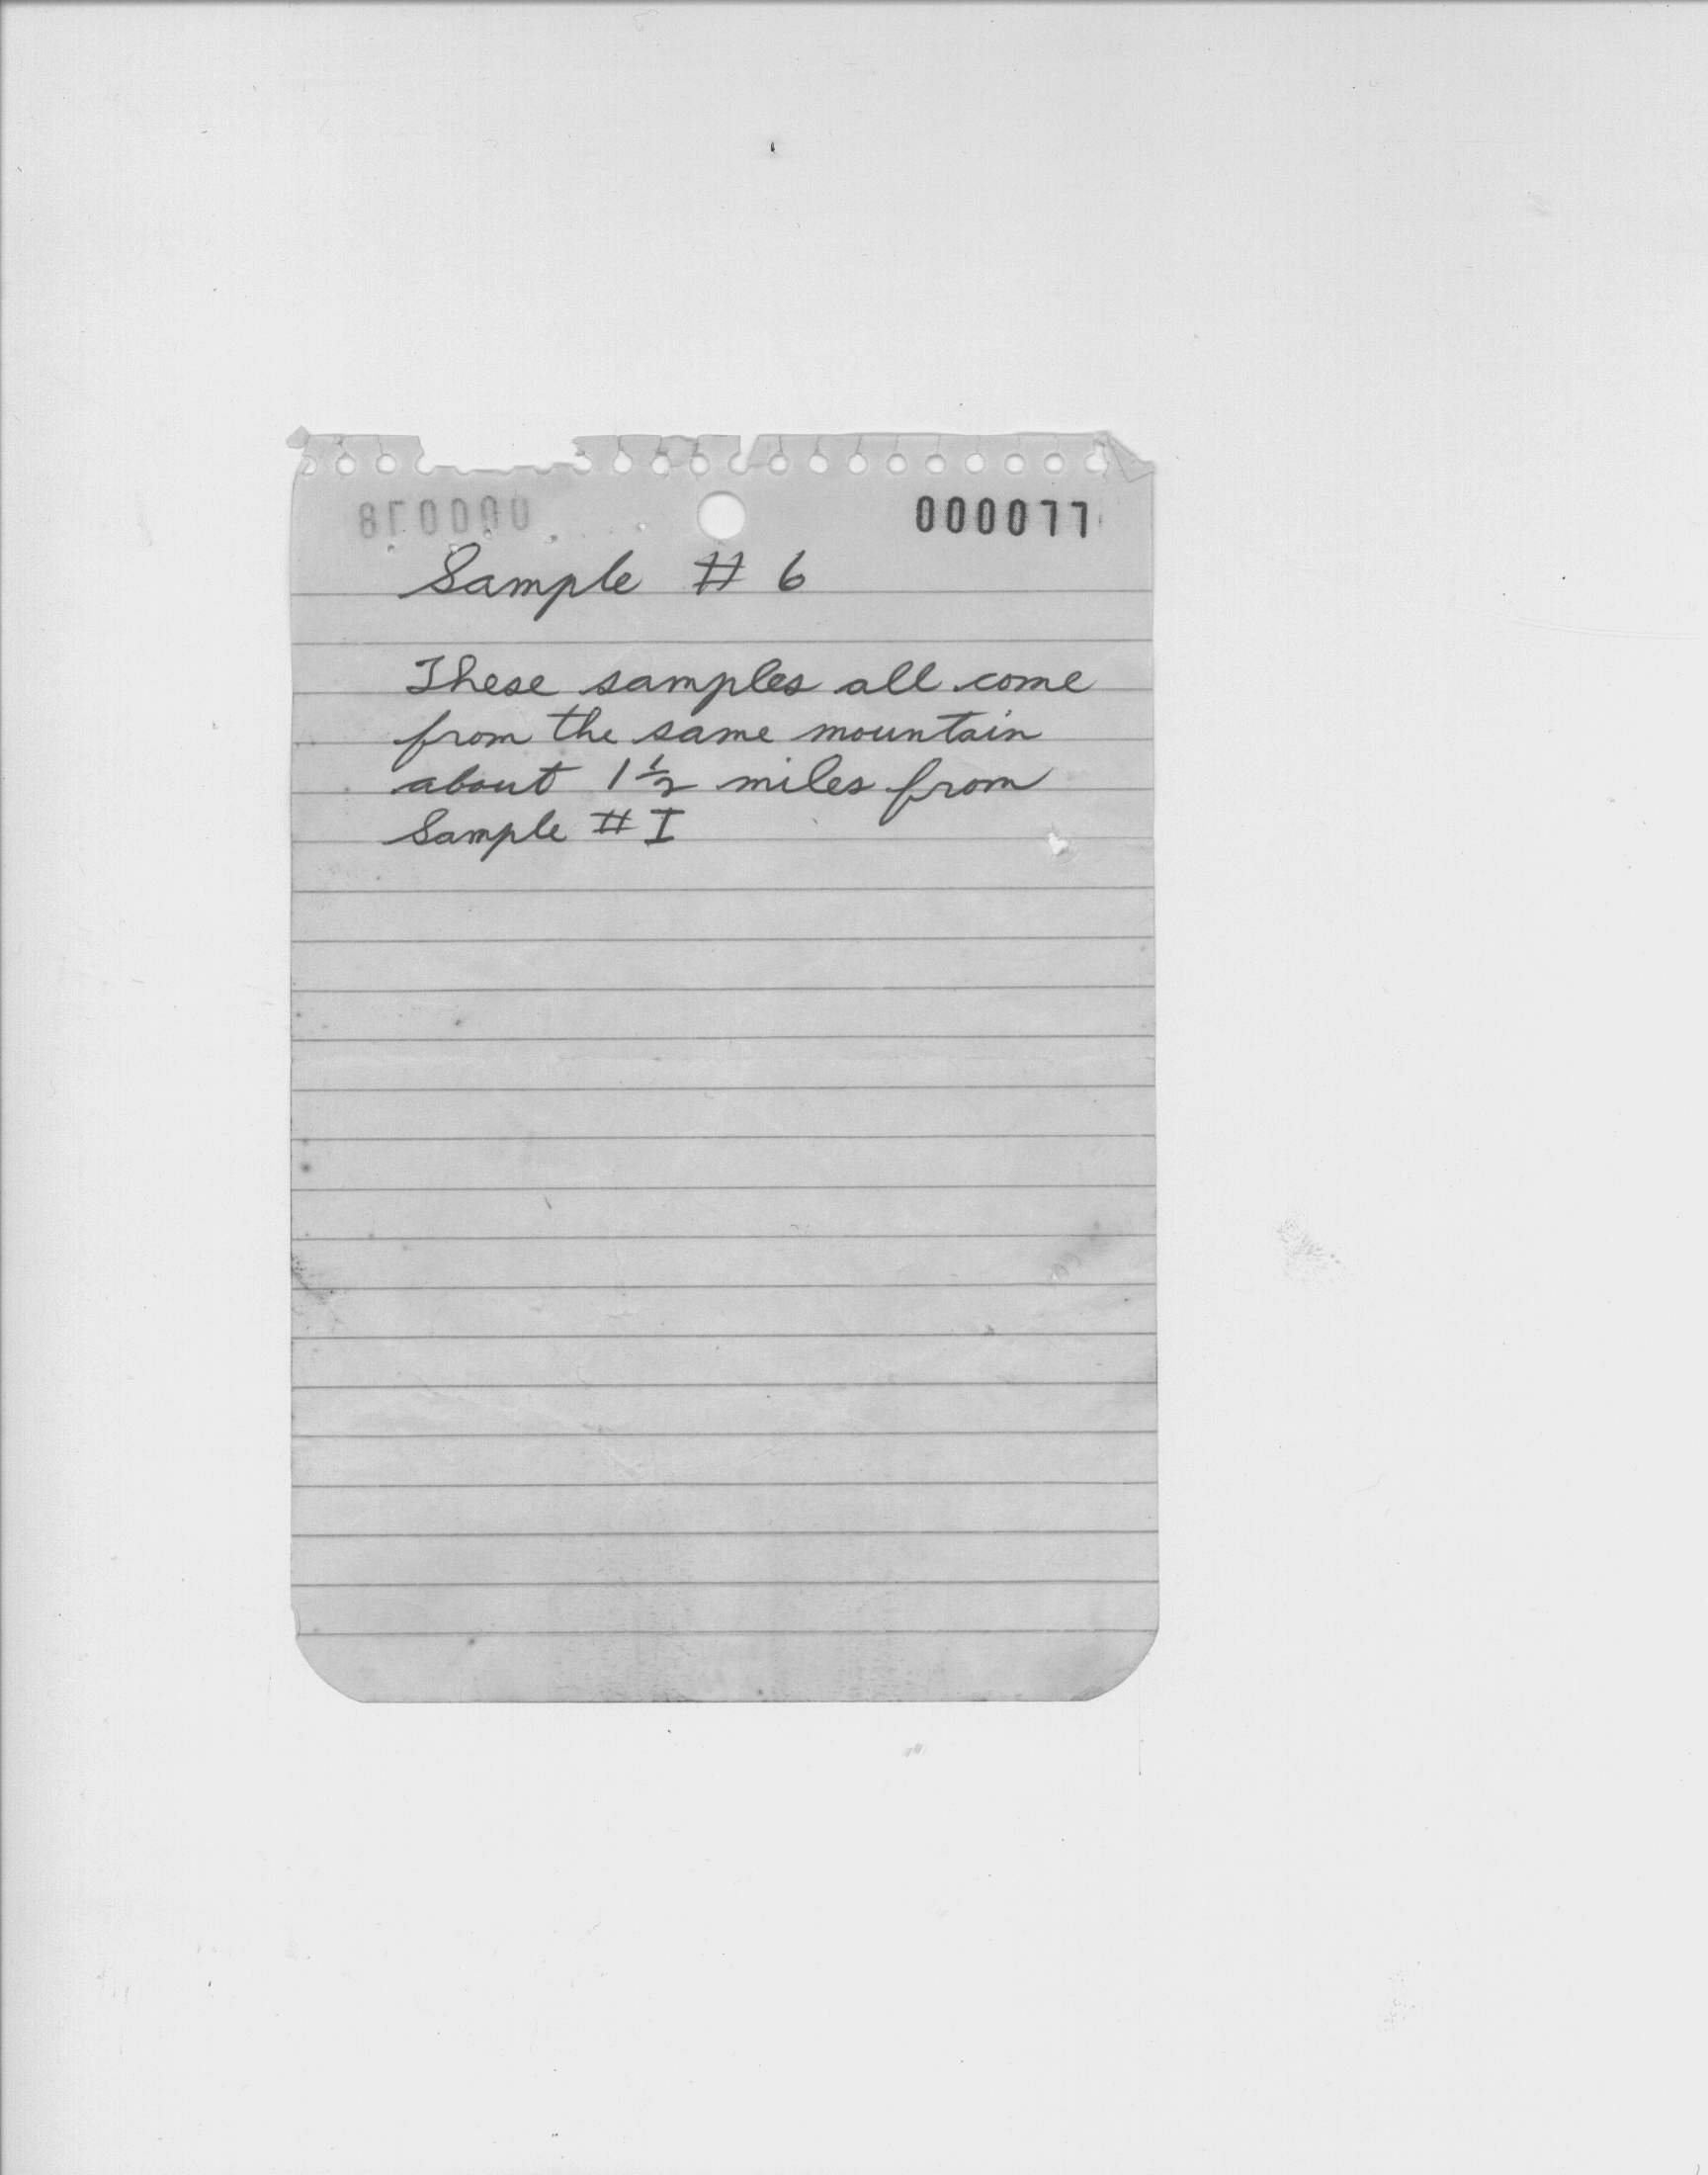 000077
Sample # 6
These samples all come
from the same mountain
about 1 1/2 miles from
Sample # I